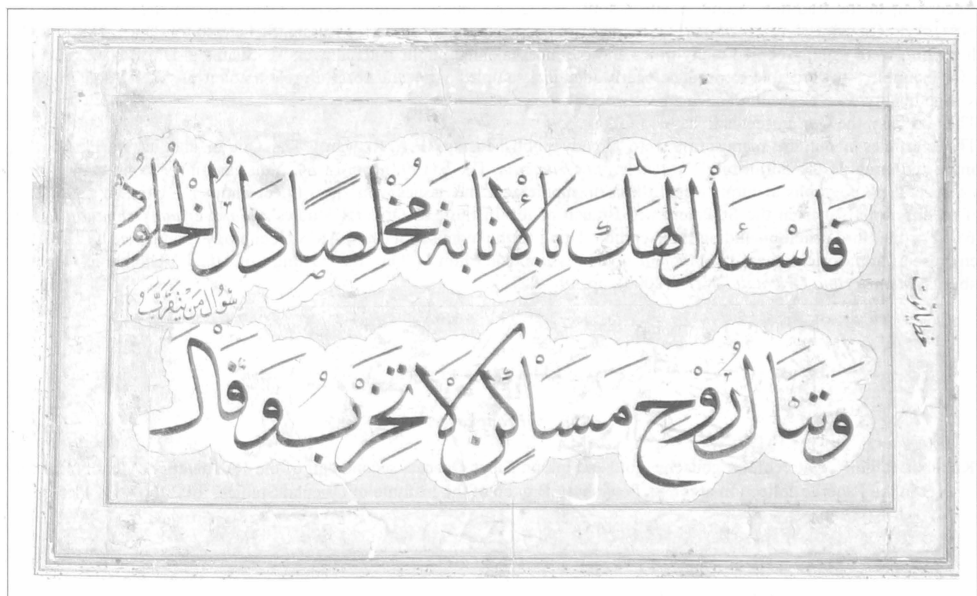 فَاسْئَلْ اِلٓهَكَ بِالْأِنَابَةِ مُخْلِصًا دَارُ الْخُلُودِ
سُؤَالَ مَنْ يَتَقَرَّبُ
وَتَنَالُ رُوْحِ مَسَاكِنَ لَاْ تَخْرَبُ وَقَالَ